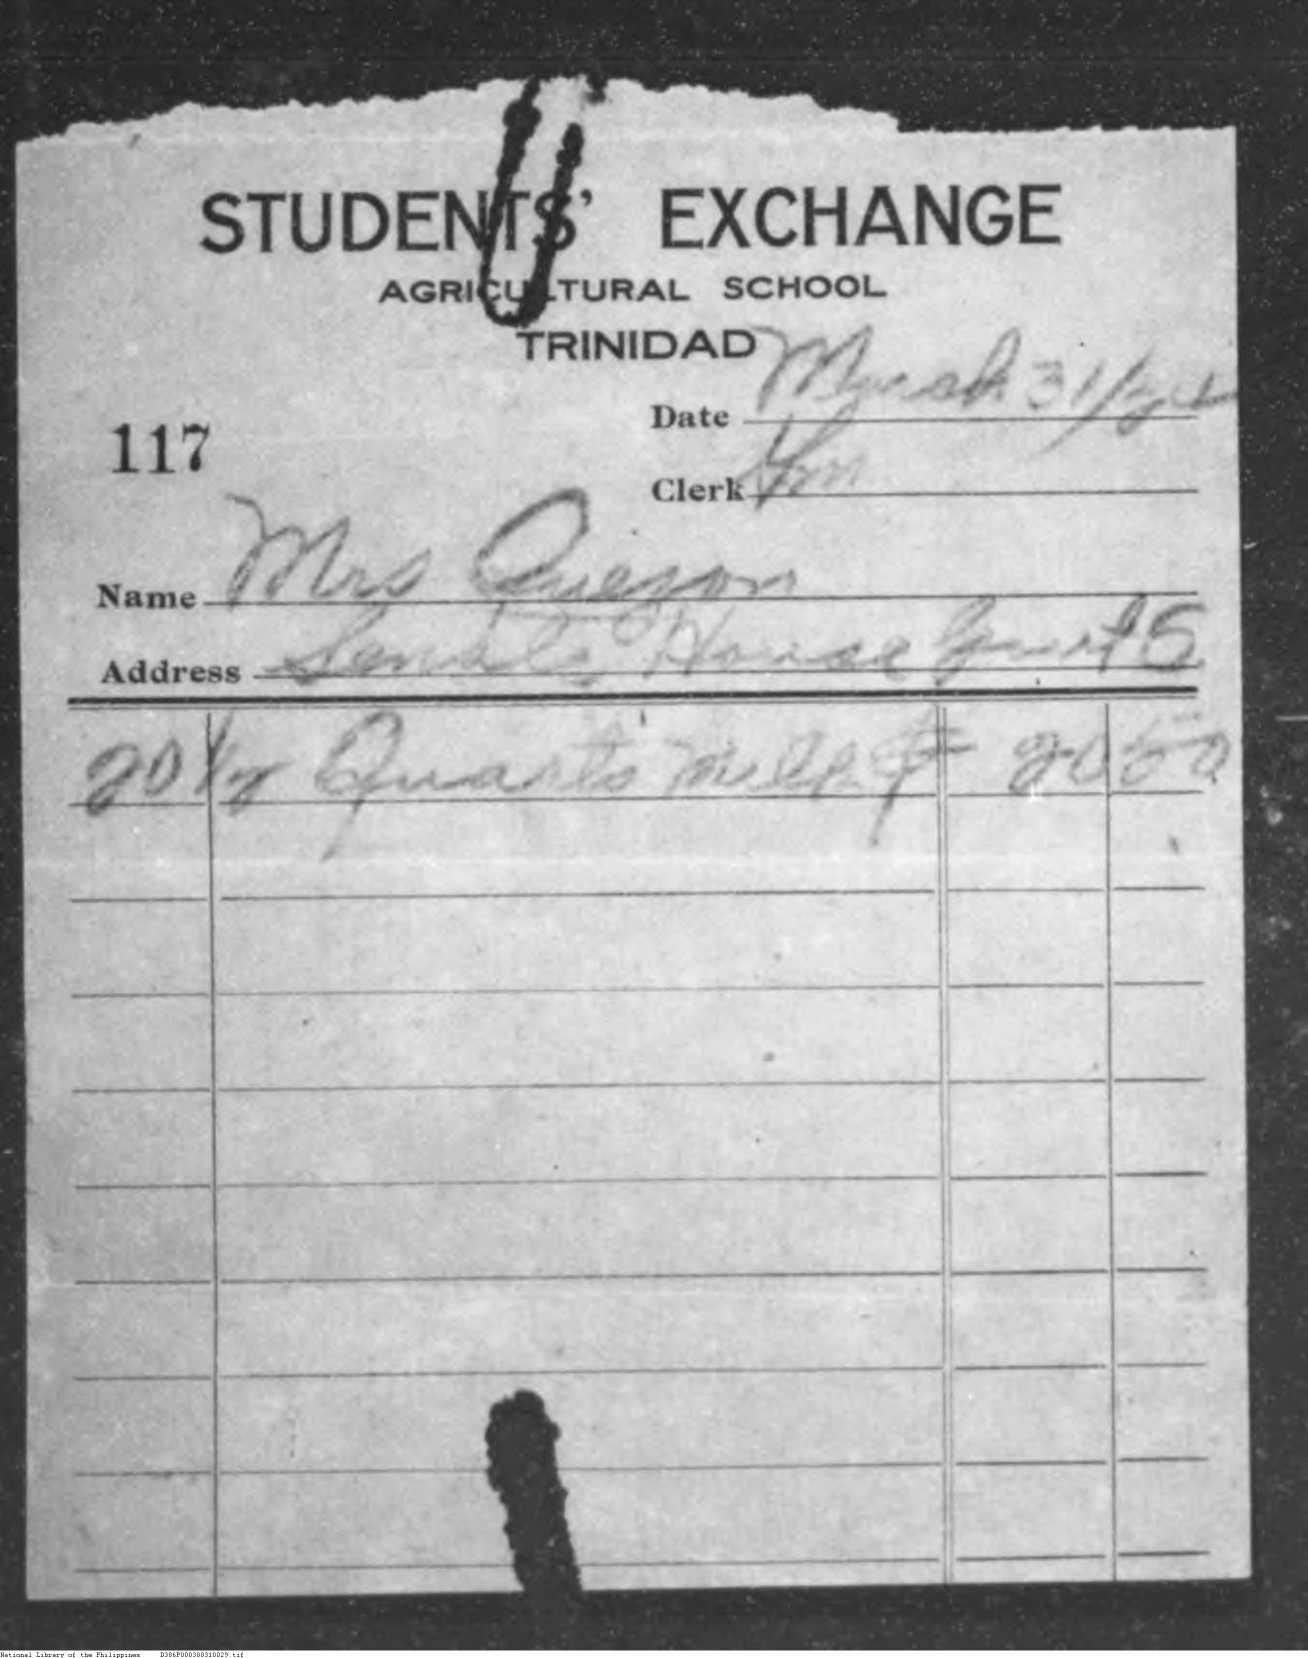 STUDENTS' EXCHANGE
AGRICULTURAL SCHOOL
TRINIDAD
117
Date March 31/
Clerk
Name Mrs Quezon
Address Senate House
20 1/2 Quarts Milk ₱ 20 50
National Library of the Philippines D386P000388310029.tif